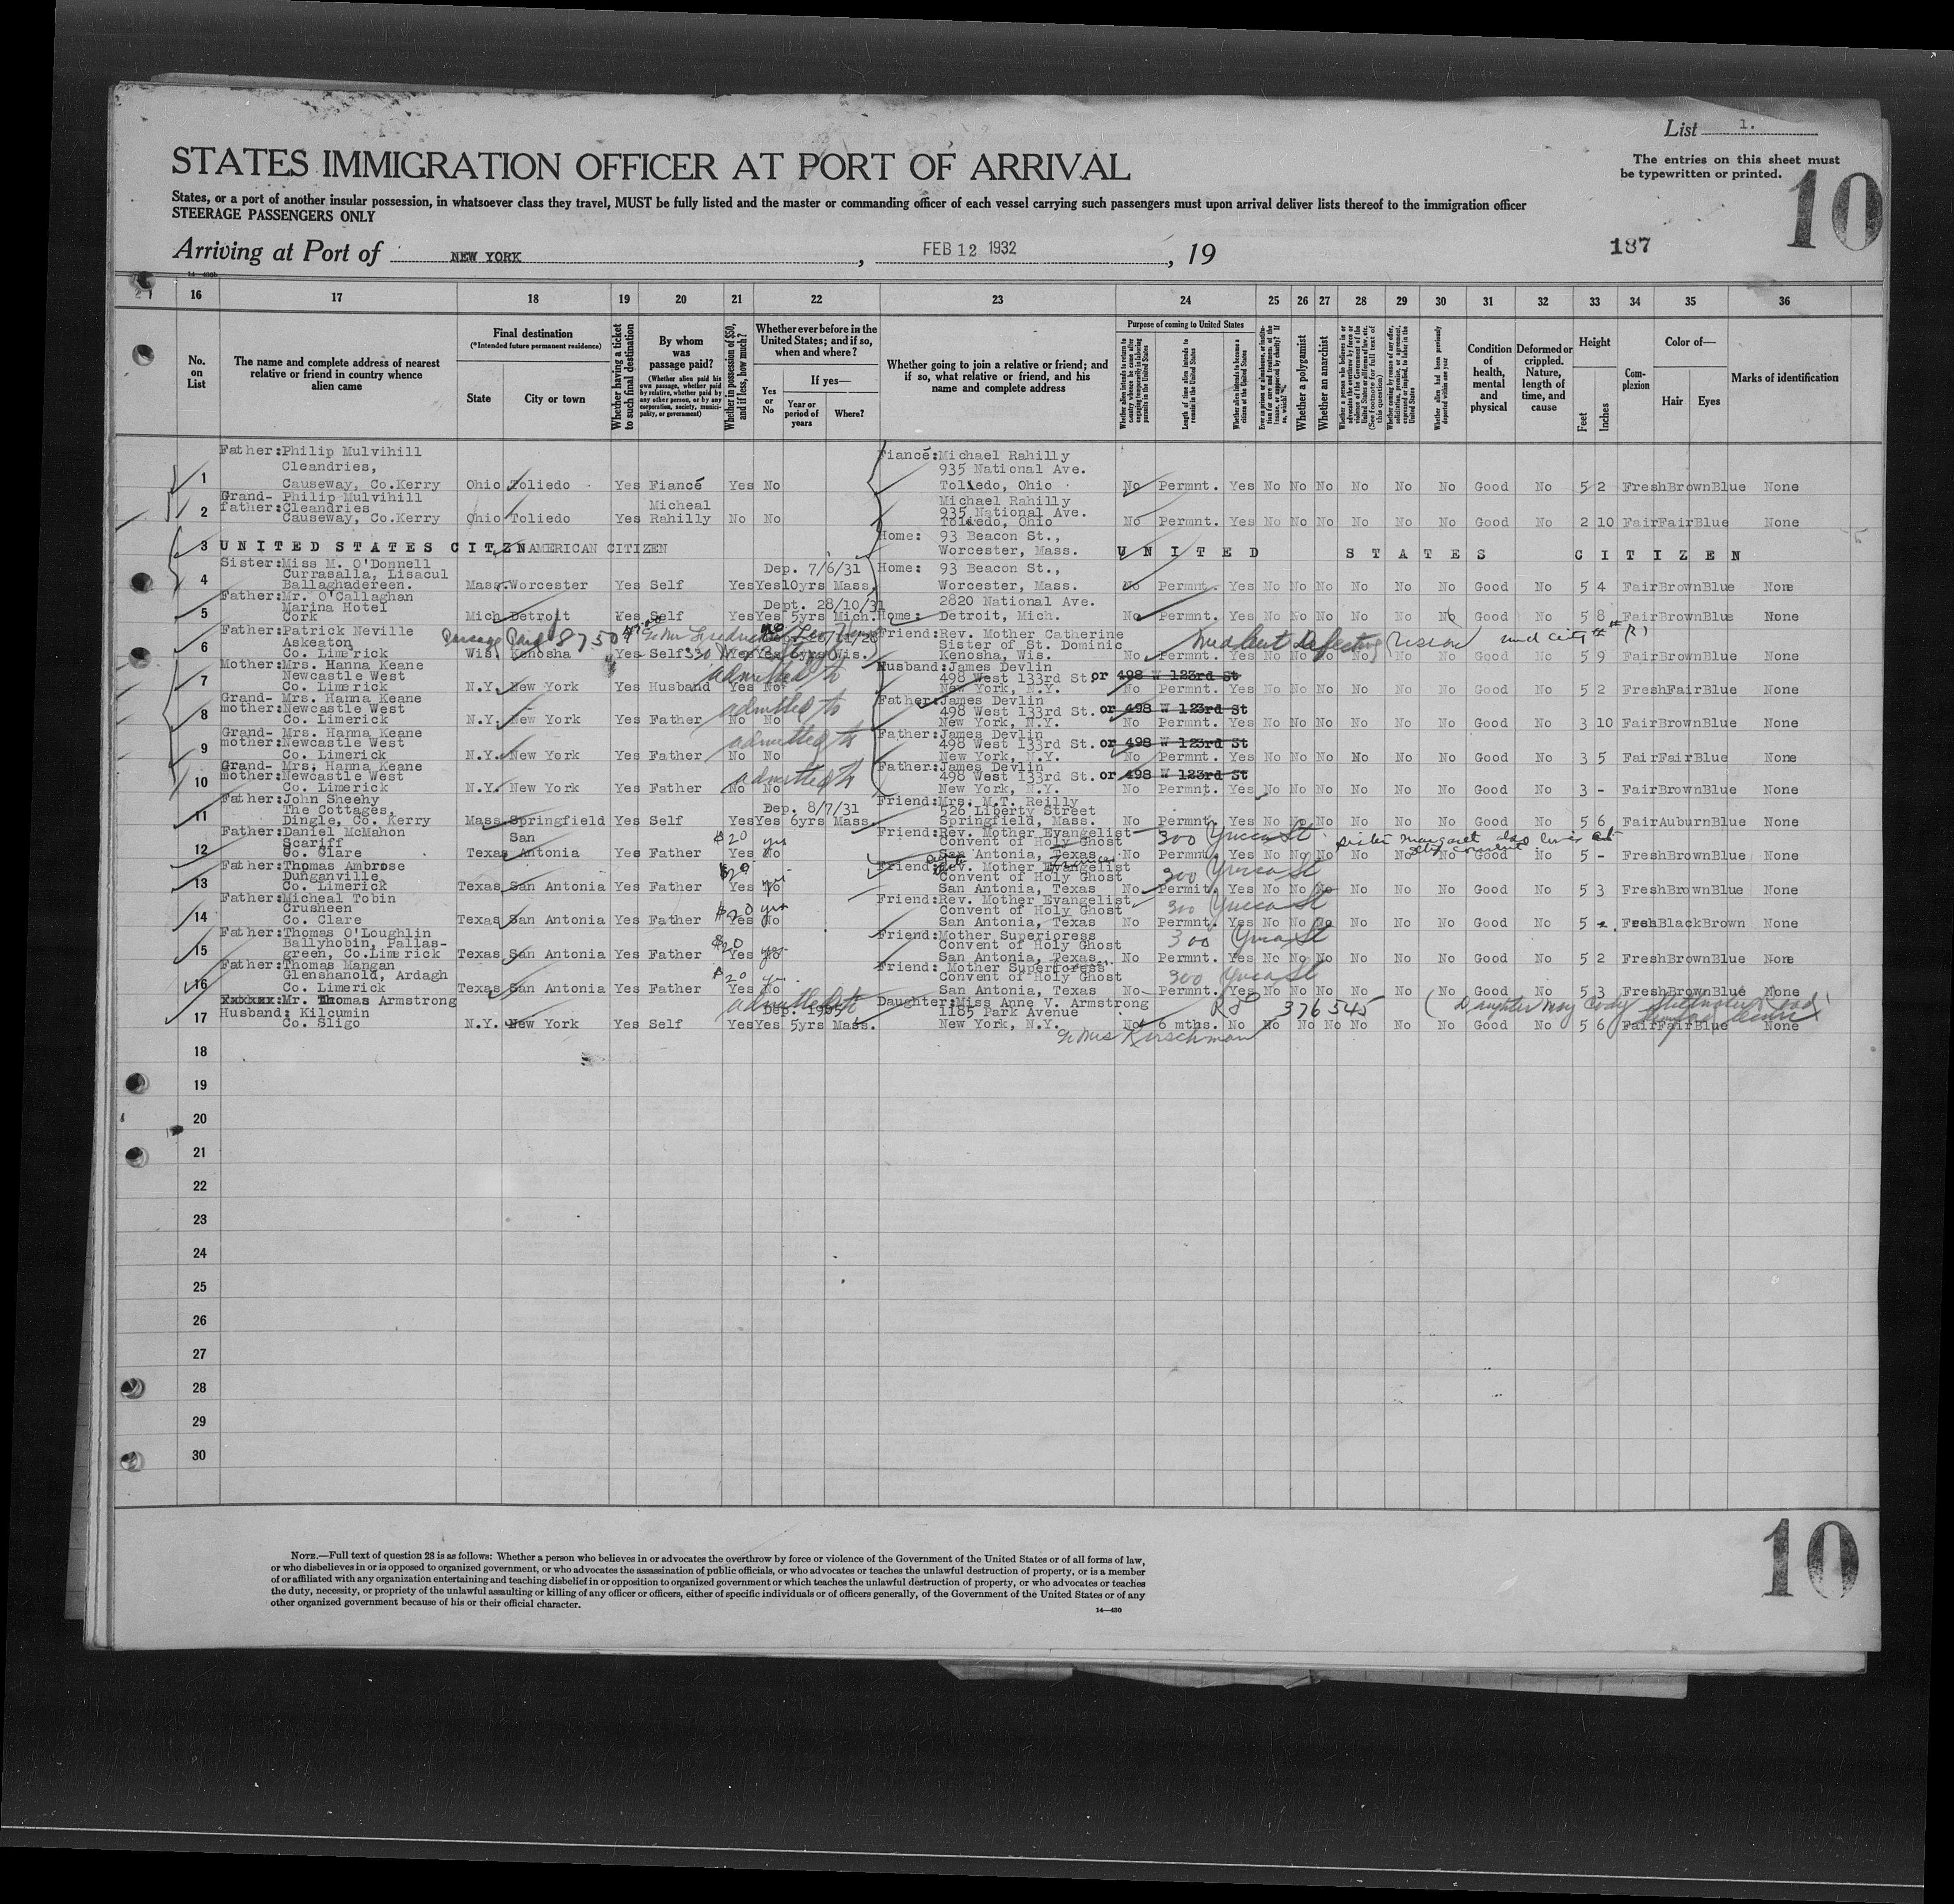 List 1.
The entries on this sheet must
be typewritten or printed.
10
STATES IMMIGRATION OFFICER AT PORT OF ARRIVAL
States, or a port of another insular possession, in whatsoever class they travel, MUST be fully listed and the master or commanding officer of each vessel carrying such passengers must upon arrival deliver lists thereof to the immigration officer
STEERAGE PASSENGERS ONLY
Arriving at Port of NEW YORK, FEB 12 1932, 19
187
16 17 18 19 20 21 22 23 24 25 26 27 28 29 30 31 32 33 34 35 36
No. on List
The name and complete address of nearest relative or friend in country whence alien came
Final destination
(*Intended future permanent residence)
State
City or town
Whether having a ticket to such final destination
By whom was passage paid?
(Whether alien paid his own passage, whether paid by relative, whether paid by any other person, or by any corporation, society, municipality, or government)
Whether in possession of $50, and if less, how much?
Whether ever before in the United States; and if so, when and where?
Yes or No
If yes—
Year or period of years
Where?
Whether going to join a relative or friend; and if so, what relative or friend, and his name and complete address
Purpose of coming to United States
Whether a polygamist
Whether an anarchist
Condition of health, mental and physical
Deformed or crippled. Nature, length of time, and cause
Height
Feet
Inches
Complexion
Color of—
Hair
Eyes
Marks of identification
1 Father: Philip Mulvihill Cleandries, Causeway, Co.Kerry Ohio Toliedo Yes Fiancé Yes No Fiancé: Michael Rahilly 935 National Ave. Toledo, Ohio No Permnt. Yes No No No No No No Good No 5 2 Fresh Brown Blue None
2 Grand-father: Philip Mulvihill Cleandries Causeway, Co.Kerry Ohio Toliedo Yes Micheal Rahilly No No Michael Rahilly 935 National Ave. Toledo, Ohio No Permnt. Yes No No No No No No Good No 2 10 Fair Fair Blue None
3 UNITED STATES CITZN AMERICAN CITIZEN Home: 93 Beacon St., Worcester, Mass. UNITED STATES CITIZEN
4 Sister: Miss M. O'Donnell Currasalla, Lisacul Ballaghadereen. Mass. Worcester Yes Self Yes Yes Dep. 7/6/31 10yrs Mass. Home: 93 Beacon St., Worcester, Mass. No Permnt. Yes No No No No No No Good No 5 4 Fair Brown Blue None
5 Father: Mr. O'Callaghan Marina Hotel Cork Mich. Detroit Yes Self Yes Yes Dept. 28/10/31 5yrs Mich. Home: 2820 National Ave. Detroit, Mich. No Permnt. Yes No No No No No No Good No 5 8 Fair Brown Blue None
6 Father: Patrick Neville Askeaton Co. Limerick Wis. Kenosha Yes Self Yes Yes 6yrs Wis. Friend: Rev. Mother Catherine Sister of St. Dominic Kenosha, Wis. No Permnt. Yes No No No No No No Good No 5 9 Fair Brown Blue None
Passage Paid
7 Mother: Mrs. Hanna Keane Newcastle West Co. Limerick N.Y. New York Yes Husband Yes No admitted Husband: James Devlin 498 West 133rd St. or 498 W 123rd St New York, N.Y. No Permnt. Yes No No No No No No Good No 5 2 Fresh Fair Blue None
8 Grand-mother: Mrs. Hanna Keane Newcastle West Co. Limerick N.Y. New York Yes Father No No admitted Father: James Devlin 498 West 133rd St. or 498 W 123rd St New York, N.Y. No Permnt. Yes No No No No No No Good No 3 10 Fair Brown Blue None
9 Grand-mother: Mrs. Hanna Keane Newcastle West Co. Limerick N.Y. New York Yes Father No No admitted Father: James Devlin 498 West 133rd St. or 498 W 123rd St New York, N.Y. No Permnt. Yes No No No No No No Good No 3 5 Fair Fair Blue None
10 Grand-mother: Mrs. Hanna Keane Newcastle West Co. Limerick N.Y. New York Yes Father No No admitted Father: James Devlin 498 West 133rd St. or 498 W 123rd St New York, N.Y. No Permnt. Yes No No No No No No Good No 3 - Fair Brown Blue None
11 Father: John Sheehy The Cottages, Dingle, Co. Kerry Mass. Springfield Yes Self Yes Yes Dep. 8/7/31 6yrs Mass. Friend: Mrs. M.T. Reilly 526 Liberty Street Springfield, Mass. No Permnt. Yes No No No No No No Good No 5 6 Fair Auburn Blue None
12 Father: Daniel McMahon Scariff Co. Clare Texas San Antonia Yes Father $20 Yes yes No Friend: Rev. Mother Evangelist Convent of Holy Ghost San Antonia, Texas 300 Yucca St No Permnt. Yes No No No No No No Good No 5 - Fresh Brown Blue None
sister Margaret also lives at
13 Father: Thomas Ambrose Dunganville, Co. Limerick Texas San Antonia Yes Father $20 Yes No Friend: Rev. Mother Evangelist Convent of Holy Ghost San Antonia, Texas 300 Yucca St No Permit. Yes No No No No No No Good No 5 3 Fresh Brown Blue None
14 Father: Micheal Tobin Crusheen Co. Clare Texas San Antonia Yes Father $20 Yes yes No Friend: Rev. Mother Evangelist Convent of Holy Ghost San Antonia, Texas 300 Yucca St No Permnt. Yes No No No No No No Good No 5 - Fresh Black Brown None
15 Father: Thomas O'Loughlin Ballyhobin, Pallas-green, Co.Limerick Texas San Antonia Yes Father $20 Yes yes No Friend: Mother Superioress Convent of Holy Ghost San Antonia, Texas 300 Yucca St No Permnt. Yes No No No No No No Good No 5 2 Fresh Brown Blue None
16 Father: Thomas Mangan Glenshanold, Ardagh Co. Limerick Texas San Antonia Yes Father $20 Yes yes No Friend: Mother Superioress Convent of Holy Ghost San Antonia, Texas 300 Yucca St No Permnt. Yes No No No No No No Good No 5 3 Fresh Brown Blue None
17 Husband: Mr. Thomas Armstrong Kilcumin Co. Sligo N.Y. New York Yes Self Yes Yes Dep. 1905 5yrs Mass. admitted Daughter: Miss Anne V. Armstrong 1185 Park Avenue New York, N.Y. No 6 mths. No No No No No No No Good No 5 6 Fair Fair Blue None
376545
Daughter May Cody
Mrs Kirschman
18
19
20
21
22
23
24
25
26
27
28
29
30
NOTE.—Full text of question 28 is as follows: Whether a person who believes in or advocates the overthrow by force or violence of the Government of the United States or of all forms of law,
or who disbelieves in or is opposed to organized government, or who advocates the assassination of public officials, or who advocates or teaches the unlawful destruction of property, or is a member
of or affiliated with any organization entertaining and teaching disbelief in or opposition to organized government or which teaches the unlawful destruction of property, or who advocates or teaches
the duty, necessity, or propriety of the unlawful assaulting or killing of any officer or officers, either of specific individuals or of officers generally, of the Government of the United States or of any
other organized government because of his or their official character.
14—430
10